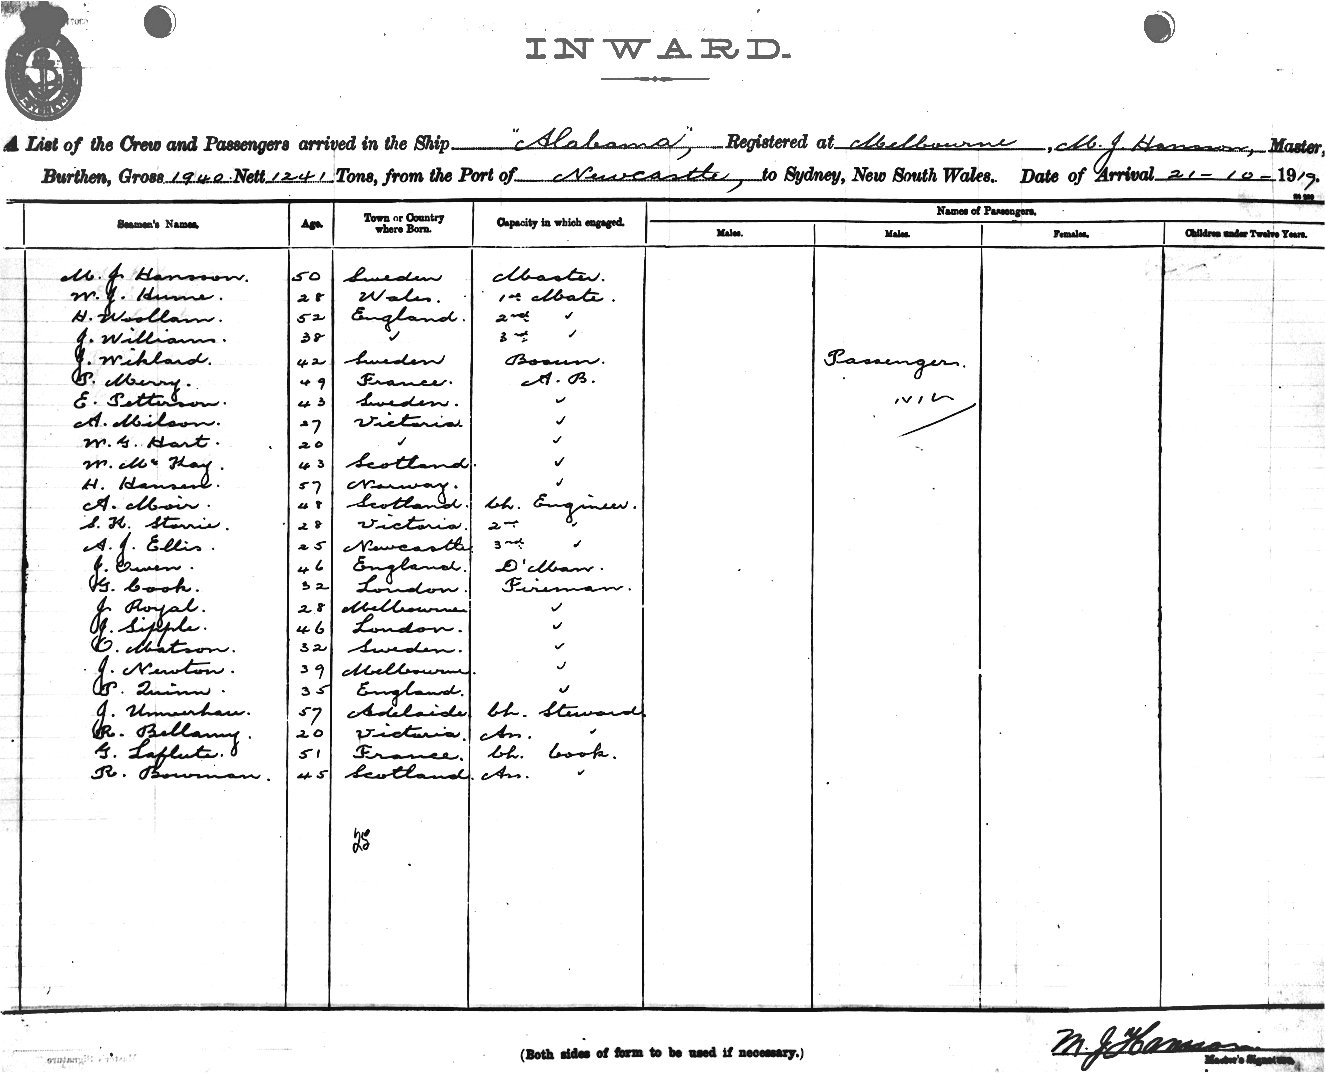 INWARD.
A List of the Crew and Passengers arrived in the Ship "Alabama", Registered at Melbourne, M. J. Hansson, Master,
Burthen, Gross 1940 Nett 1241 Tons, from the Port of Newcastle, to Sydney, New South Wales. Date of Arrival 21-10-1919.
Seamen's Names. Age. Town or Country where Born. Capacity in which engaged. Names of Passengers.
Males. Males. Females. Children under Twelve Years.
M. J. Hansson. 50 Sweden Master.
W. J. Hume. 28 Wales. 1st Mate.
H. Woollam. 52 England. 2nd ✓
J. Williams. 38 ✓ 3rd ✓
J. Wiklard. 42 Sweden Bosun. Passengers.
P. Merry. 49 France. A. B.
E. Petterson. 43 Sweden. ✓ Nil
A. Milson. 27 Victoria ✓
W. G. Hart. 20 ✓ ✓
W. McKay. 43 Scotland. ✓
H. Hansen. 57 Norway. ✓
A. Moir. 48 Scotland. Ch. Engineer.
S. H. Storrie. 28 Victoria. 2nd ✓
A. J. Ellis. 25 Newcastle 3rd ✓
J. Owen. 46 England. D'Man.
G. Cook. 32 London. Fireman.
J. Royal. 28 Melbourne ✓
J. Sipple. 46 London. ✓
O. Matson. 32 Sweden. ✓
J. Newton. 39 Melbourne ✓
P. Quinn. 35 England. ✓
J. 57 Adelaide Ch. Steward.
R. Bellamy. 20 Victoria. As. ✓
G. Laflute. 51 France. Ch. Cook.
R. Bowman. 45 Scotland. As. ✓
25
(Both sides of form to be used if necessary.)
M. J. Hansson
Master's Signature.